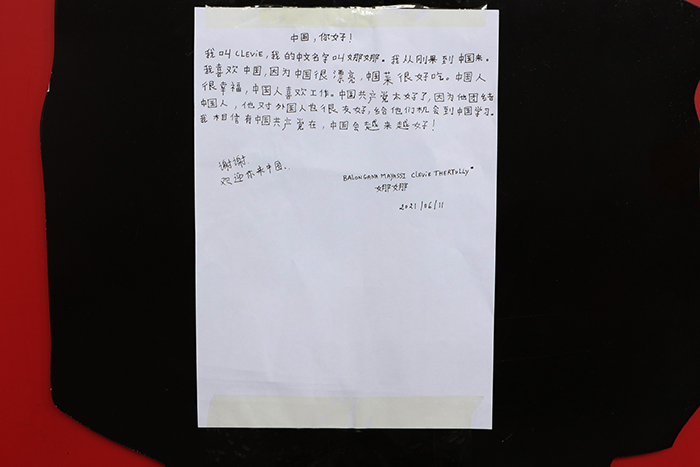 中国，你好！
我叫CLEVIE，我的中文名字叫娜娜。我从刚果到中国来。
我喜欢中国，因为中国很漂亮，中国菜很好吃。中国人
很幸福，中国人喜欢工作。中国共产党太好了，因为他团结
中国人，他对外国人也很友好，给他们机会到中国学习。
我相信有中国共产党在，中国会越来越好！
谢谢.
欢迎你来中国.
BALONGANA MAJASSI CLEVIE THERFULLY
娜娜
2021/06/11